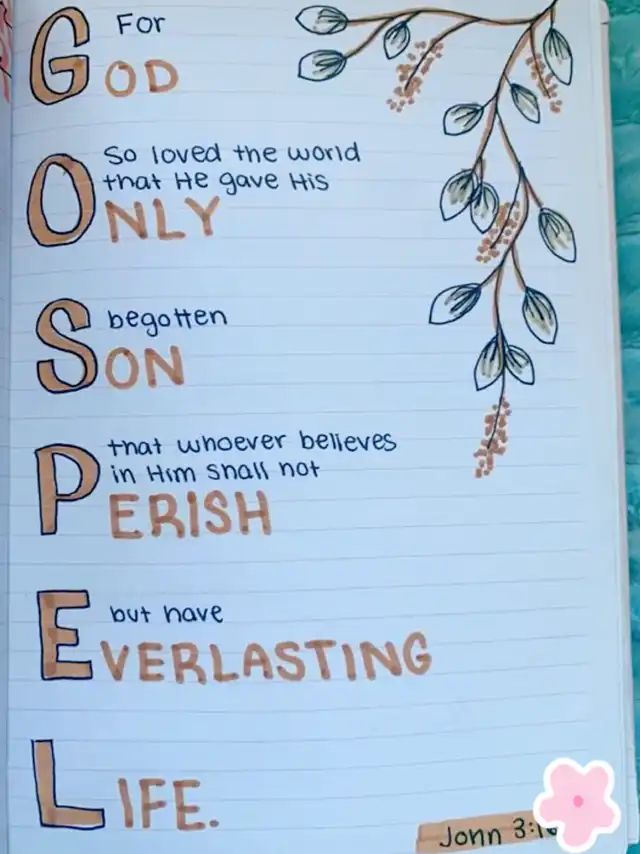 For
GOD
So loved the world
that He gave His
ONLY
begotten
SON
that whoever believes
in Him shall not
PERISH
but have
EVERLASTING
LIFE.
John 3:1